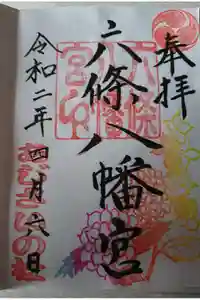 奉拝
六條八幡宮
令和二年
四月六日
あじさいの社